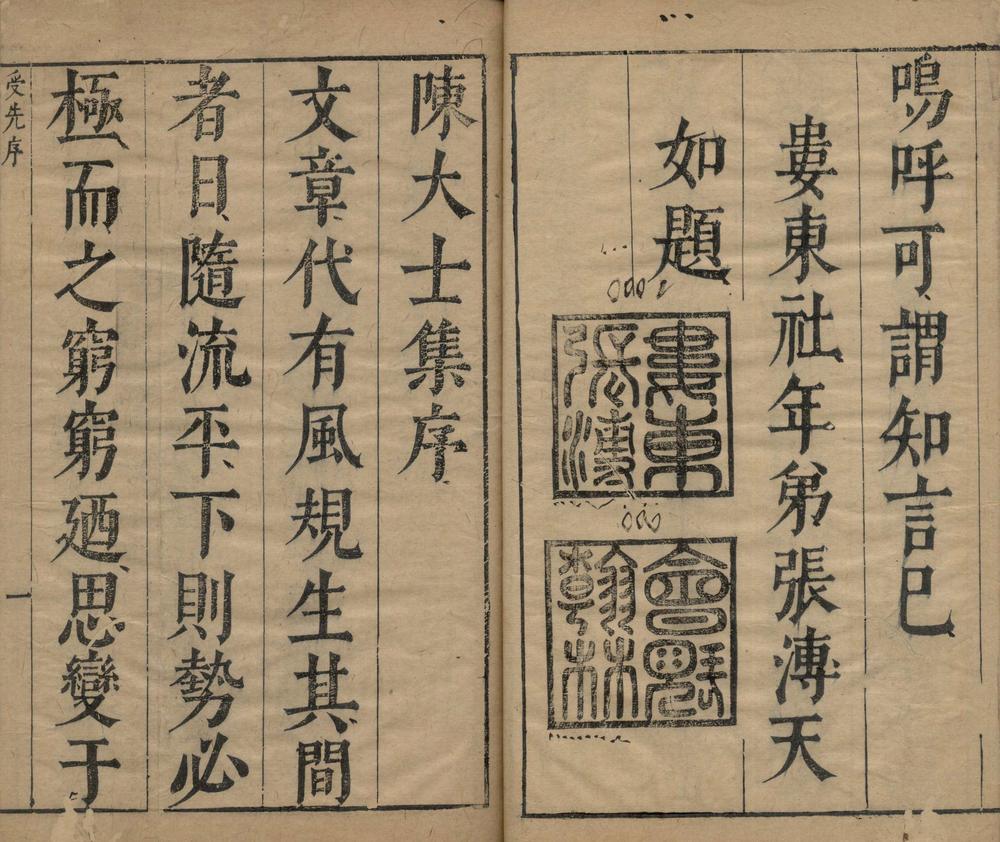 嗚呼可謂知言已
婁東社年弟張溥天
如題
婁東
張溥
會魁
翰林
陳大士集序
文章代有風規生其間
者日隨流平下則勢必
極而之窮窮廼思變于
受先序
一